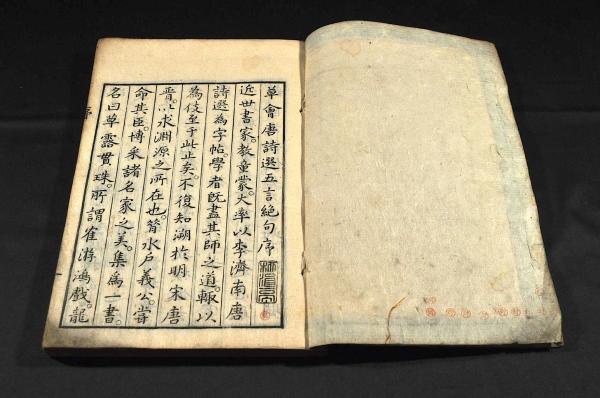 草會唐詩選五言絶句序
近世書家。教童蒙。大率以李濟南唐
詩選為字帖。學者既盡其師之道。輙以
為伎至于此止矣。不復知溯於明宋唐
晋。以求淵源之所在也。昔水戸義公。嘗
命其臣。博采諸名家之美。集為一書。
名曰草露貫珠。所謂雀游鴻戲。龍
序